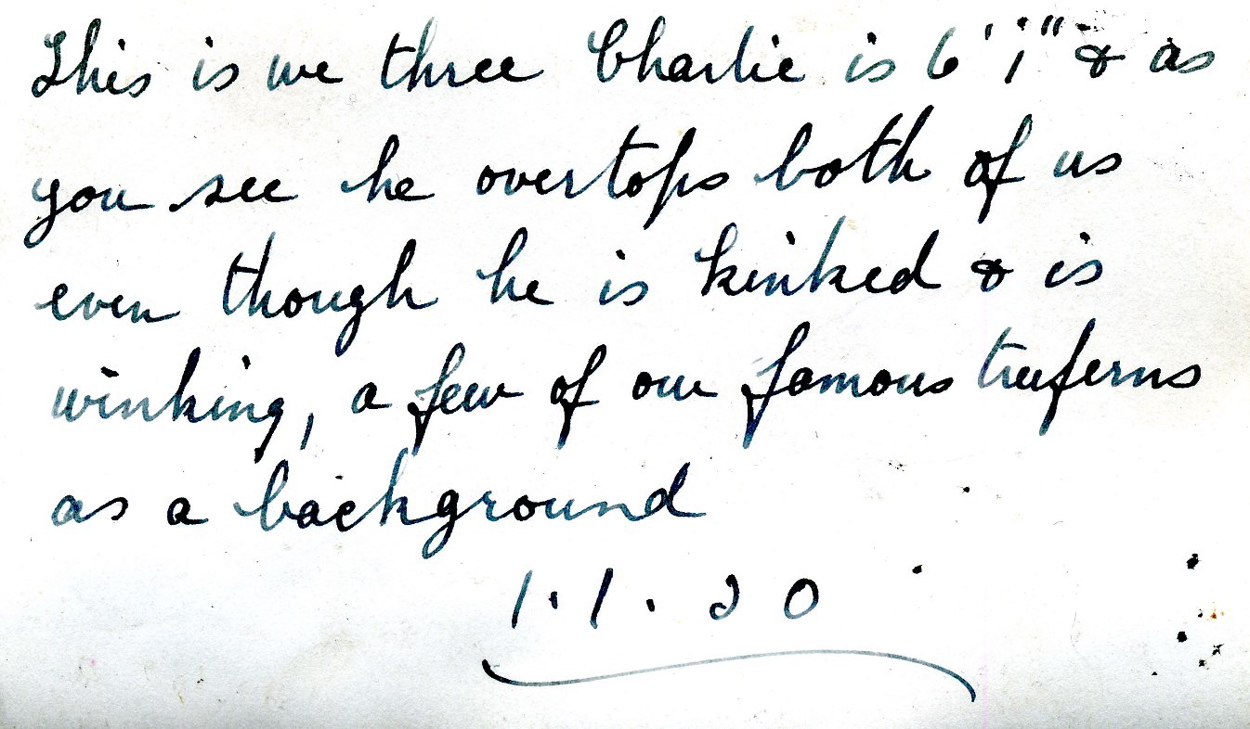 This is we three Charlie is 6' 1" & as
you see he overtops both of us
even though he is kinked & is
winking, a few of our famous treeferns
as a background
1.1.20